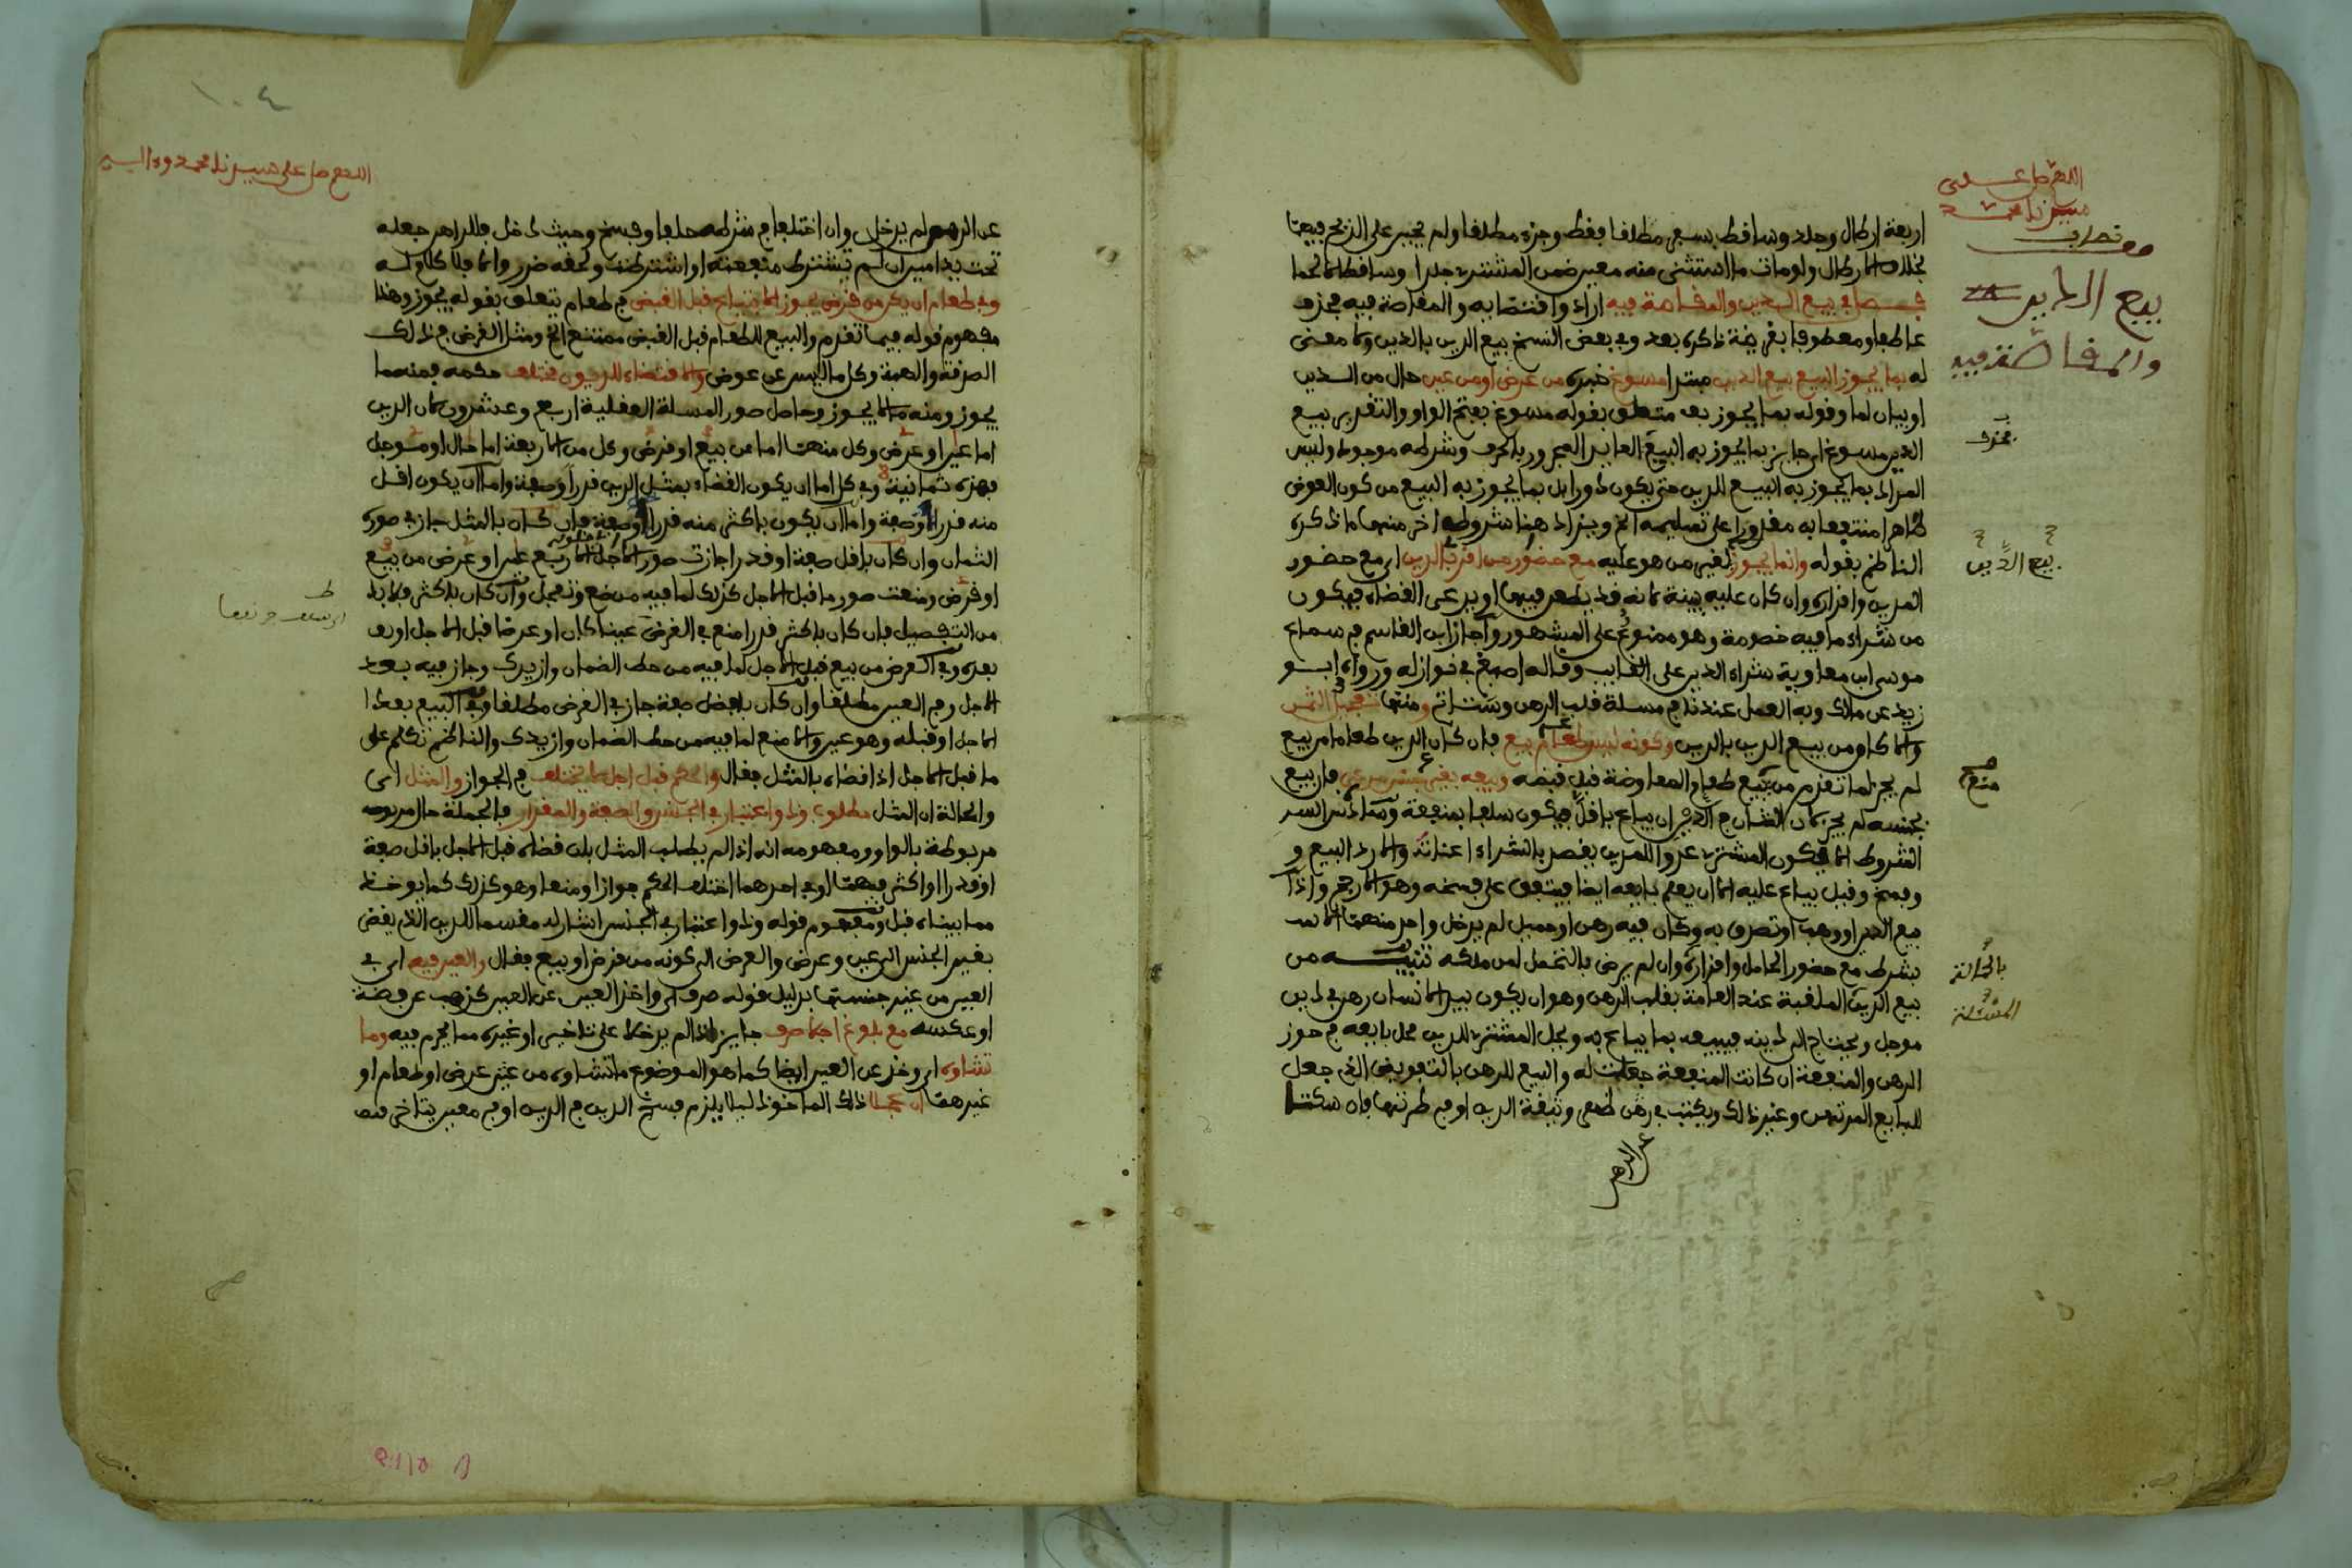 اللهم صل على
سيدنا محمد
بيع الدين
والمقاصة فيه
اربعة ارطال وجلد وساقط بسفر مطلقا فقط وجزء مطلقا ولم يجبر على الذبح فيهما
بخلاف الارطال ولو مات ما استثنى منه معين ضمن المشترى جلدا وساقطا لا لحما
فصل في بيع الدين والمقاصة فيه اراد واقتضائه والمقاصة فيه فحذف
عاطفا ومعطوفا بقرينة ذكره بعد وفي بعض النسخ بيع الدين بالدين ولا معنى
له بما يجوز البيع بيع الدين مبتدا مسوغ خبره من عرض او من عين حال من الدين
او بيان لما وقوله بما يجوز به متعلق بقوله مسوغ بفتح الواو والتقدير بيع
الدين مسوغ اي جايز بما يجوز به البيع العايد المجرور بالحرف وشرطه موجود وليس
المراد بما يجوز به البيع للدين حتى يكون دورا بل بما يجوز به البيع من كون العوض
طاهرا منتفعا به مقدورا على تسليمه الخ ويزاد هنا شروط اخر منها ما ذكره
الناظم بقوله وانما يجوز لغير من هو عليه مع حضور من اقر بالدين اي مع حضور
المدين واقراره وان كان عليه بينة لانه قد يطعن فيها او يدعى القضاء فيكون
من شراء ما فيه خصومة وهو ممنوع على المشهور واجاز ابن القاسم في سماع
موسى ابن معاوية شراء الدين على الغايب وقاله اصبغ في نوازله ورواه ابو
زيد عن مالك وبه العمل عندنا في مسلة قلب الرهن وستاتي ومنها تعجيل الثمن
والا كان من بيع الدين بالدين وكونه ليس طعام بيع فان كان الدين طعاما من بيع
لم يجز لما تقدم من بيع طعام المعاوضة قبل قبضه وبيعه بغير جنس مرعي فان بيع
بجنسه لم يجز لان الشان في الدين ان يباع باقل فيكون سلفا بمنفعة
الشروط الا يكون المشترى عدوا للمدين يقصد بالشراء اعناته والا رد البيع و
وفسخ وقيل يباع عليه الا ان يعلم بايعه ايضا فيتفق على فسخه وهو الارجح واذا
بيع الدين او وهب او تصرف به وكان فيه رهن او حميل لم يدخل واحد منهما الا
بشرط مع حضور الحامل واقراره وان لم يرض بالتحمل لمن ملكه تنبيه من
بيع الدين الملقبة عند العامة بقلب الرهن وهو ان يكون بيد الانسان رهن في دين
موجل ويحتاج الى دينه فيبيعه بما يباع به ويحل المشترى للدين محل بايعه في حوز
الرهن والمنفعة ان كانت المنفعة جعلت له والبيع للرهن بالتفويض الذي جعل
للبايع المرتهن وغير ذلك ويكتب في رهن ظهر وثيقة الدين او في طرتها فان سكتا
عن الرهن
بيع الدين
صح
بالحمالة
المسئلة
١٠٤
اللهم صل على سيدنا محمد وءاله
عن الرهن لم يدخل وان اختلفا في شرطه حلفا وفسخ وحيث دخل فللراهن جعله
تحت يد امين ان لم تشترط منفعته او اشترطت ولحقه ضرر والا فلا كلام له
وفي طعام ان يكن من قرض يجوز الابتياع قبل القبض في طعام يتعلق بقوله يجوز وهذا
مفهوم قوله فيما تقدم والبيع للطعام قبل القبض ممتنع الخ ومثل القرض في ذلك
الصدقة والهبة وكل ما ليس عن عوض والاقتضاء للديون مختلف حكمه فمنه ما
يجوز ومنه ما لا يجوز وحاصل صور المسلة العقلية اربع وعشرون لان الدين
اما عين او عرض وكل منهما اما من بيع او قرض وكل من الاربعة اما حال او موجل
فهذه ثمانية وفي كل اما ان يكون القضاء بمثل الدين قدرا وصفة واما ان يكون اقل
منه قدرا او صفة واما ان يكون باكثر منه قدرا او صفة فان كان بالمثل جاز في صوره
الثمان وان كان باقل صفة او قدرا جازت صور الاجل الاربع عين او عرض من بيع
او قرض ومنعت صور ما قبل الاجل كذلك لما فيه من ضع وتعجل وان كان باكثر فلا بد
من التفصيل فان كان باكثر قدرا منع في القرض عينا كان او عرضا قبل الاجل او
بعده وفي العرض من بيع قبل الاجل لما فيه من حط الضمان وازيدك وجاز فيه بعد
الاجل وفي العين مطلقا وان كان بافضل صفة جاز في القرض مطلقا وفي البيع بعد ا
الاجل او قبله وهو عين والا منع لما فيه من حط الضمان وازيدك والناظم تكلم على
ما قبل الاجل اذا قضاه بالمثل فقال والحكم قبل اجل لا يختلف في الجواز والمثل اي
والحالة ان المثل مطلوب وذو اعتبار في الجنس والصفة والمقدار فالجملة حال
مربوطة بالواو ومفهومه انه اذا لم يطلب المثل بان قضاه قبل الاجل باقل صفة
او قدرا او اكثر فيهما او في احدهما اختلف الحكم جوازا ومنعا وهو كذلك كما يوخذ
مما بيناه قبل ومفهوم قوله وذو اعتبار في الجنس اشار له مقسما للدين الذي يقضى
بغير الجنس الى عين وعرض والعرض الى كونه من قرض او بيع فقال والعين فيه اي في
العين من غير جنسها بدليل قوله صرف اي واخذ العين عن العين كذهب عن فضة
او عكسه مع بلوغ اجلا صرف جايز اذا لم يدخلا على تاخير او غيره مما يحرم فيه وما
تشاء اي وخذ عن العين ايضا كما هو الموضوع ما تشاوه من غير عرض او طعام او
غيرهما ان عجلا ذلك الماخوذ ليلا يلزم فسخ الدين في الدين او في معين يتاخر